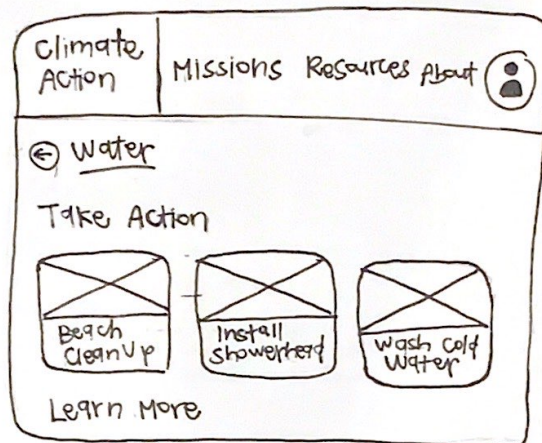 Climate
Action
Missions Resources About
Water
Take Action
Beach
CleanUp
Install
Showerhead
Wash Cold
Water
Learn More